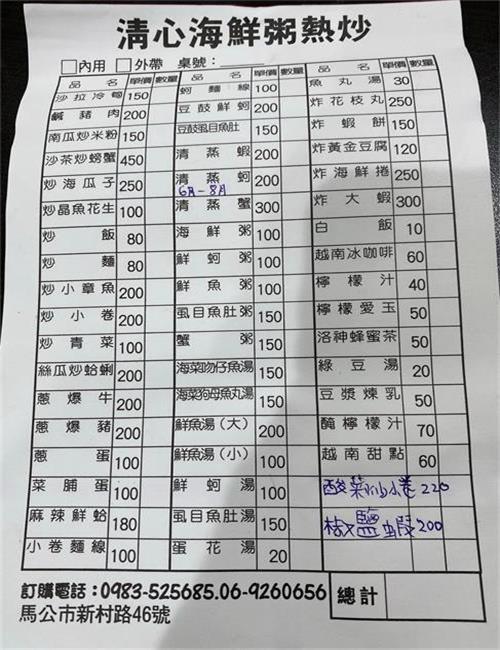 清心海鮮粥熱炒
內用 外帶 桌號：
品名 單價 數量
沙拉冷筍 150
鹹豬肉 200
南瓜炒米粉 150
沙茶炒螃蟹 450
炒海瓜子 250
炒晶魚花生 100
炒飯 80
炒麵 80
炒小章魚 200
炒小卷 200
炒青菜 100
絲瓜炒蛤蜊 200
蔥爆牛 200
蔥爆豬 200
蔥蛋 100
菜脯蛋 100
麻辣鮮蛤 180
小卷麵線 100
品名 單價 數量
蚵麵線 100
豆鼓鮮蚵 200
豆鼓虱目魚肚 150
清蒸蝦 200
清蒸蚵 200
6月-8月
清蒸蟹 300
海鮮粥 100
鮮蚵粥 100
鮮魚粥 100
虱目魚肚粥 150
蟹粥 150
海菜吻仔魚湯 150
海菜狗母魚丸湯 150
鮮魚湯(大) 200
鮮魚湯(小) 100
鮮蚵湯 100
虱目魚肚湯 150
蛋花湯 20
品名 單價 數量
魚丸湯 30
炸花枝丸 250
炸蝦餅 150
炸黃金豆腐 120
炸海鮮捲 250
炸大蝦 300
白飯 10
越南冰咖啡 60
檸檬汁 40
檸檬愛玉 50
洛神蜂蜜茶 50
綠豆湯 20
豆漿煉乳 50
醃檸檬汁 70
越南甜點 60
酸菜炒小卷 220
椒鹽蝦 200
總計
訂購電話：0983-525685.06-9260656
馬公市新村路46號